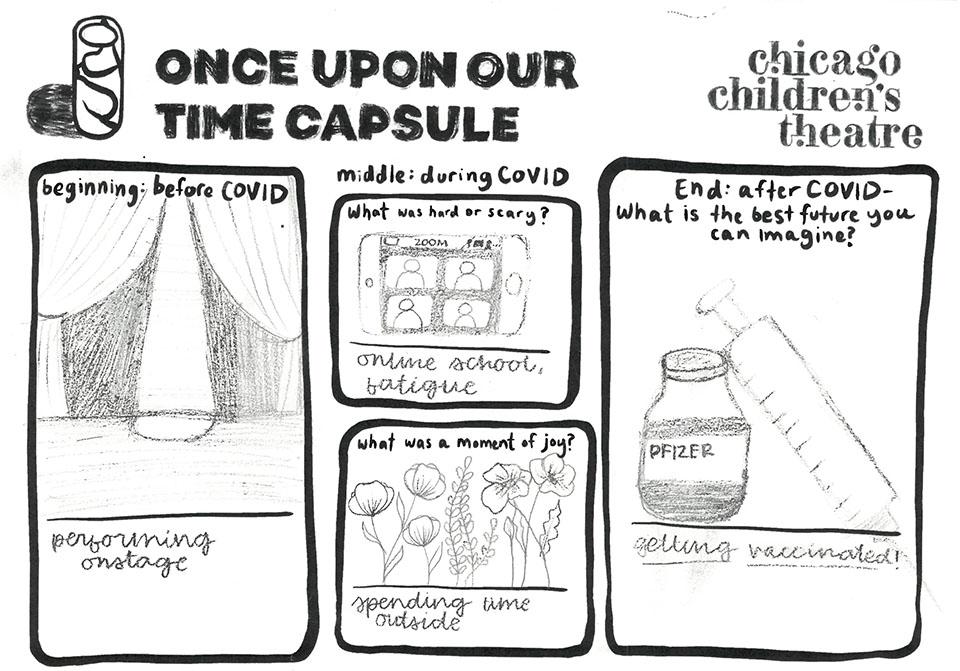 ONCE UPON OUR
TIME CAPSULE
chicago
children's
theatre
beginning: before COVID
performing
onstage
middle: during COVID
What was hard or scary?
ZOOM
online school,
fatigue
what was a moment of joy?
spending time
outside
End: after COVID-
What is the best future you
can imagine?
PFIZER
getting vaccinated!